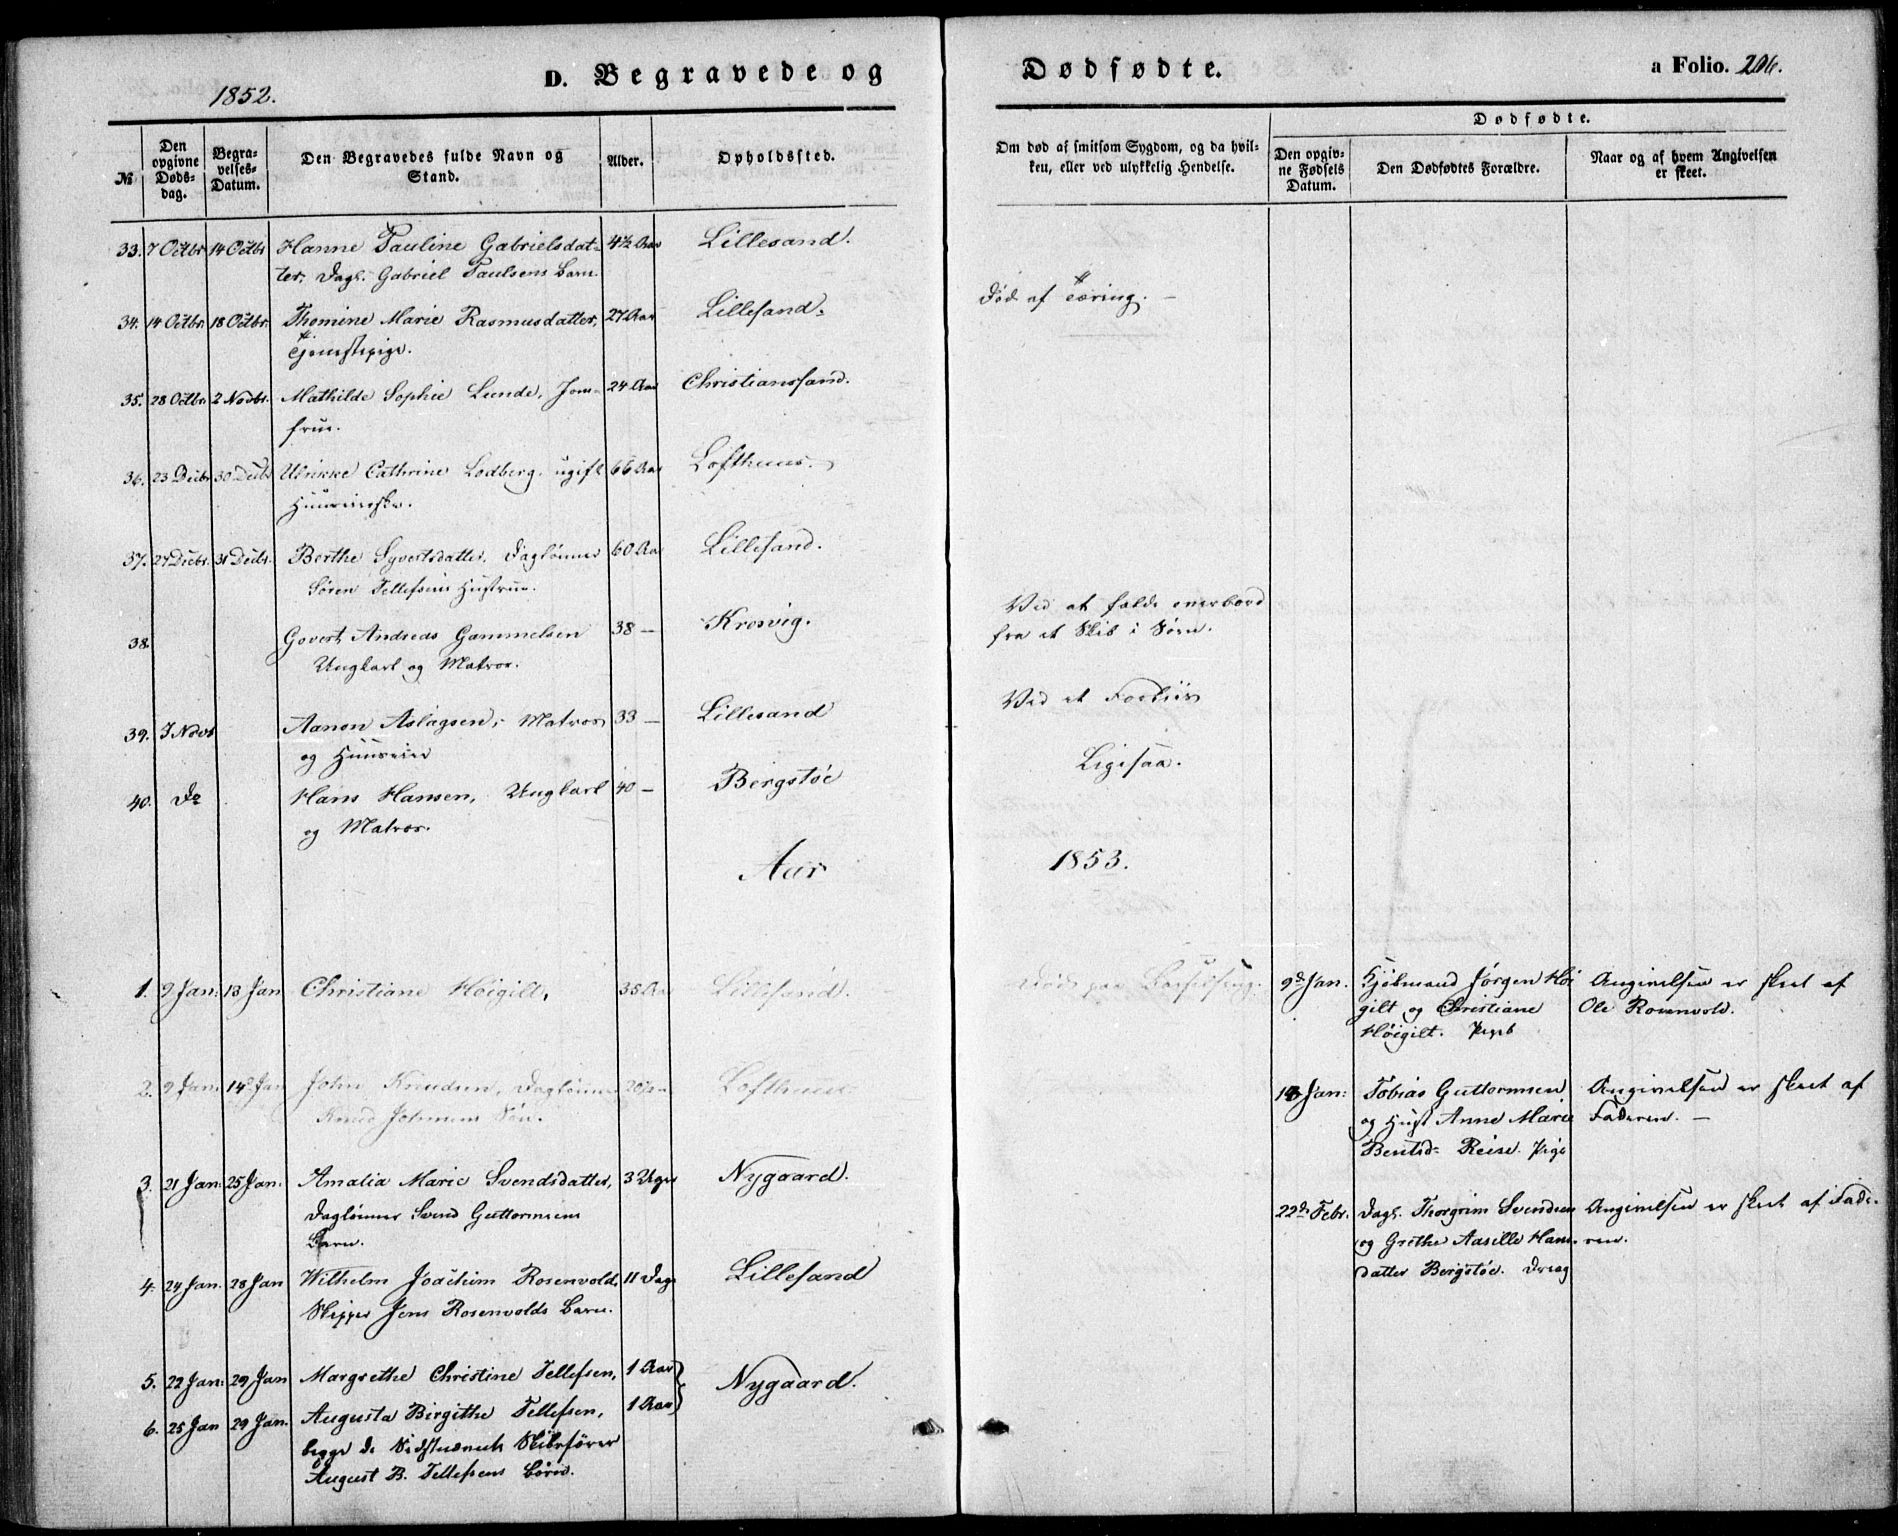 1852.
D. Begravede og
Dødfødte.
a Folio. 206.
№
Den opgivne Døds-dag.
Begra-velses-Datum.
Den Begravedes fulde Navn og Stand.
Alder.
Opholdssted.
Om død af smitsom Sygdom, og da hvil-
ken, eller ved ulykkelig Hendelse.
Dødfødte.
Den opgiv-ne Fødsels Datum.
Den Dødfødtes Forældre.
Naar og af hvem Angivelsen er skeet.
33. 7 Octbr 14 Octbr Hanne Pauline Gabrielsdat- 4½ Aar Lillesand.
ter, Dagl. Gabriel Paulsens Barn.
34. 14 Octbr. 18 Octbr. Thomine Marie Rasmusdatter, 27 Aar Lillesand. Død af Tæring. —
Tjenestepige.
35. 28 Octbr. 2 Novbr. Mathilde Sophie Lunde, Jom- 24 Aar Christianssand.
frue.
36. 23 Decbr 30 Decbr Ulrikke Cathrine Lodberg. ugift 66 Aar Lofthuus.
37. 27 Decbr. 31 Decbr. Berthe Syvertsdatter, Daglønner 60 Aar Lillesand.
Søren Tellefsens Hustrue.
38. Govert Andreas Gammelsen 38 — Krosvig. Ved at falde overbord
Ungkarl og Matros. fra et Skib i Søen.
39. Novb Aanon Aslagsen, Matros 33 — Lillesand Ved et Forliis
og Huuseier
40. Do Hans Hansen, Ungkarl 40 — Bergstøe Ligesaa.
og Matros.
Aar 1853.
1. 9 Jan: 13 Jan Christiane Høigilt, 38 Aar Lillesand. Døde paa Barselseng. 9de Jan. Kjøbmand Jørgen Høi Angivelsen er skeet af
gilt og Christiane Ole Rosenvold.
Høigilt. Pigeb
2. 9 Jan: 14 Jan John Knudsen, Daglønner Lofthuus
Knud Johnsens Søn.
Jan: Tobias Guttormsen Angivelsen er skeet af
og Hust Anne Marie Faderen. —
Bentsd= Reise. Pige
3. 21 Jan: 25 Jan. Amalia Marie Svendsdatter, 3 Uger Nygaard.
Daglønner Svend Guttormsens
Barn.
22de Febr. Dagl. Thorgrim Svendsen Angivelsen er skeet af Fade-
og Grethe Aasille Hans- ren.
datter Bergstøe. Dreng
4. 24 Jan. 28 Jan Wilhelm Joachim Rosenvold, 11 Dage Lillesand
Skipper Jens Rosenvolds Barn.
5. 22 Jan: 29 Jan Margrethe Christine Tellefsen, 1 Aar Nygaard.
6. 25 Jan 29 Jan. Augusta Birgithe Tellefsen, 1 Aar
begge de Sidstnævnte Skibsfører
August B. Tellefsens Børn.